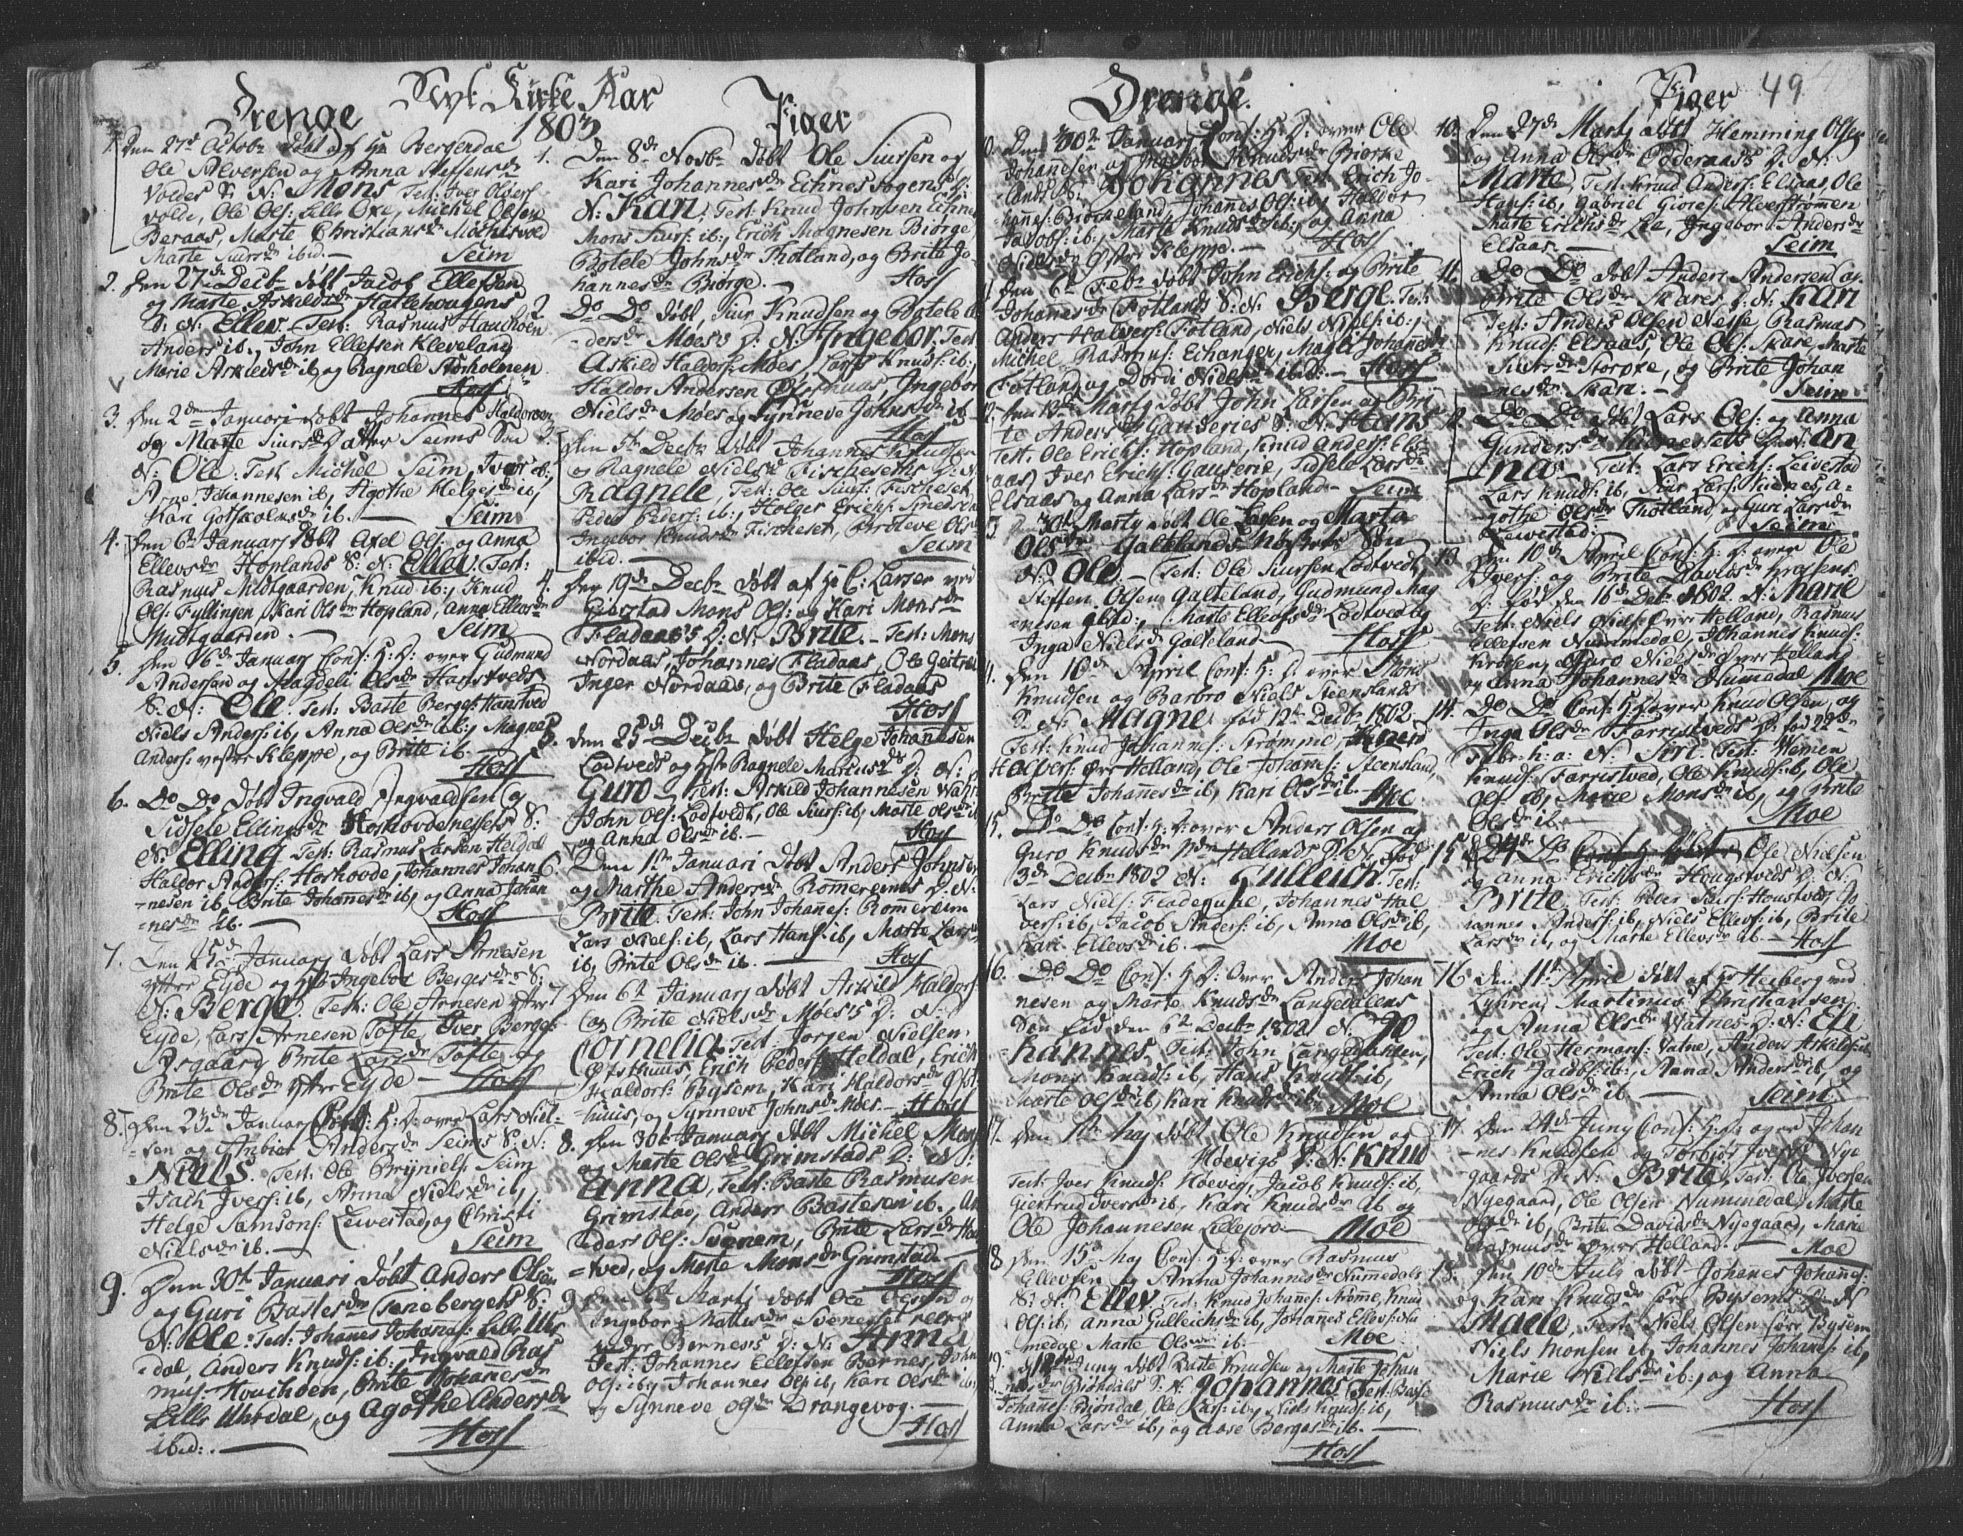 Nyt Kirke Aar
1803
Drenge
1. Den 27d Octobr døbt af Hr Bergendal
Ole Alversen og Anna Steffensdr
Voldes S: N: Mons Test: Iver Olvers:
volde, Ole Ols: Lille Oxe, Michel Olsen
Beraas, Marte Christiansdr
Marte Siursdr ibid. — Seim
2. Den 27de Decbr døbt Jacob Ellefsen
og Marte Askildsdr Hattehougens
S: N: Ellev. Test: Rasmus Hauchoen
Anders ib., John Ellefsen Kleveland
Marie Askieldsdr ib og Ragnele Storholmen
Hoss
3. Den 2den Januari døbt Johannes Haldorsen
og Marte Siursdatter Seims Søn
N: Ole. Test: Michel Seim, Iver ib:,
Arne Johannesen ib, Agothe Helgesdr ib,
Kari Gotskolcksdr ib. — Seim
4. Den 6te Januarj døbt Axel Ols: og Anna
Ellevsdr Hoplands S: N: Ellev. Test:
Rasmus Mildtgaarden, Knud ib:, Knud
Ols: Fyllingen, Kari Olsdr Hopland, Anna Ellevsdr
Mildtgaarden. — Seim
5. Den 16de Januarj Conf: H: D: over Gudmund
Andersen og Magdeli Olsdr Hanstveds
S: N: Ole. Test: Baste Bergs: Hanstved
Niels Anders: ib, Anna Olsdr ib., Magne
Anders: vestre Kleppe, og Brite ib.
Hoss
6. Do Do døbt Ingvald Ingvaldsen og
Sidsele Ellingsdr Hoskovdenessets S:
N: Elling Test: Rasmus Larsen Heldal
Haldor Anders: Hoskovde, Johannes Johan-
nesen ib, Brite Johannesdr ib, og Anna Johan-
nesdr ib. — Hoss
7. Den 23d Januarj døbt Lars Arnesen
Yttre Eyde og Hst Ingebor Bergesdr S:
N: Berge. Test: Ole Arnesen Yttre
Eyde, Lars Arnesen Tofte, Iver Bergs:
Asgaard, Brite Larsdr Tofte, og
Brite Olsdr Yttre Eyde — Hoss
8. Den 23de Januarj Conf: H: D: over Lars Niel-
sen og Anbiør Andersdr Seims S: N:
Niels. Test: Ole Bryniels: Seim
Isach Ivers: ib, Anna Nielsdr ib,
Helge Samsons: Leivestad, og Christi
Nielsdr ib. — Seim
9. Den 30te Januari døbt Anders Olsen
og Guri Bastesdr Tenebergets S:
N: Ole. Test: Johannes Johans: Lille Uhr-
dal, Anders Knuds: ib, Ingvald Ras
mus: Houchoen, Brite Johannesdr
Lille Uhrdal, og Agothe Andersdr
ibid: — Hoss
Piger
1. Den 8de Novbr døbt Ole Siursen og
Kari Johannesdr Eihnes sogens D:
N: Kari. Test: Knud Johnsen Eihne
Mons Siurs: ib, Erich Magnesen Biørge
Botele Johnsdr Thotland, og Brite Jo-
hannesdr Biørge. — Hoss
2. Do Do døbt, Siur Knudsen og Botele An-
dersdr Moes D: N: Ingebor. Test:
Askild Haldors: Moes, Lars Knuds: ib,
Haldor Andersen Øfsthuus, Ingebor
Nielsdr Moes og Synneve Johnsdr ib
Hoss
3. Den 5te Decbr døbt Johannes Knudsen
og Ragnele Nielsdr Fischesets D: N:
Ragnele, Test: Ole Siurs: Fischeset
Peder Peders: ib, Holger Erichs: Smedsen
Ingebor Knudsdr Fischeset, Broteve Olsdr
ibid. — Seim
4. Den 19de Decbr døbt af Hr C: Larsen ved
Gierstad Mons Ols: og Kari Monsdr
Fladaas's D: N: Brite. — Test: Mons
Nordaas, Johannes Fladaas, Ole Geitra
Inger Nordaas, og Brite Fladaas
Hoss
5. Den 25d Decbr døbt Helge Johannesen
Lodtveds og Hst Ragnele Marcusdr D: N:
Guro. Test: Askild Johannesen
John Ols: Lodtvedt, Ole Siurs: ib, Marte Olsdr ib
og Anna Olsdr ib. — Hoss
6. Den 1ste Januari døbt Anders Johnsen
og Marthe Andersdr Rømereims D: N:
Brite. Test: John Johans: Rømereim
Lars Niels: ib, Lars Hans: ib, Marte Larsdr
ib, Brite Olsdr ib. — Hoss
7. Den 6te Januarj døbt Askil Haldors:
og Brite Nielsdr Moes's D: N:
Cornelia. Test: Jørgen Nielsen
Øfsthuus, Erich Peders: Heldal, Erich
Haldors: Bysem, Kari Haldorsdr Øfst-
huus, og Synneve Johnsdr Moes. — Hoss
8. Den 30te Januarj døbt Michel Mons
og Marte Olsdr Grimstads D: N:
Anna, Test: Baste Rasmusen
Grimstad, Anders Bastesen ib, An
ders Ols: Svenem, Brite Larsdr
tved, og Marte Monsdr Grimstad
Hoss
9. Den 6te Martj døbt Ole Olsen og
Ingebor Matisdr
under Bernes's D: N: Anna
Test: Johannes Ellefsen Bernes, John
Ols: ib, Johannes Ols: ib, Kari Olsdr ib,
og Synneve Ogdr Drangevog. —
Hoss
49
Drenge.
10. Den 30te Januarj Conf: H: D: over Ole
Johannesen og Ingebor Knudsdr Biørke
lands S: Johannes Test: Erich Jo-
hans: Biørkeland, Johanes Ols: ib, Haldor
Jacobs: ib, Marta Knudsdr ib, og Anna
Nielsdr Østre Kleppe. — Hoss
Den 6te Febr døbt John Erichs: og Brite
Johannesdr Fotlands S: N: Berge. Test:
Anders Halvers: Fotland, Niels Niels: ib:,
Michel Rasmus: Eihanger, Magla Johannesdr
Fotland og Dordi Nielsdr ibid: — Hoss
12. Den 13de Martj døbt John Larsen og Bri
te Andersdr Gauseries S: N: Hans
Test: Ole Erichs: Hopland, Knud Anders: Els
aas, Iver Erichs: Gauserie, Sidsele Larsdr
Elsaas og Anna Larsdr Hopland — Seim
Den 30te Martj døbt Ole Larsen og Marta
Olsdr Galtelands Søn
N: Ole. — Test: Ole Siursen Lodtvedt,
Steffen Olsen Galteland, Gudmund Mag
nesen ibid:, Marte Ellefsdr Lodtved og
Inga Nielsdr Galteland — Hoss
Den 10de April Conf: H: D: over Mons
Knudsen og Barbro Niels Steenslands
S: N: Magne, fød 12te Decbr 1802.
Test: Knud Johannes: Strømme,
Halvers: Øvr Helland, Ole Johans: Steensland,
Brite Johannesdr ib, Kari Olsdr ib. Moe
15. Do Do Conf: H: D: over Anders Olsen og
Guro Knudsdr Hellands S: N: fød
3de Decbr 1802 N: Gulleich. Test:
Lars Niels: Fladequal, Johannes Hal
vers: ib, Jacob Anders: ib, Anna Olsdr ib,
Kari Ellevsdr ib. — Moe
16. Do Do Conf: H: D: over Anders Johan
nesen og Marte Knudsdr Langedalens
Søn fød den 6te Decbr 1802 N: Jo
hannes, Test: John Langedahlen,
Mons Knuds: ib, Hans Knuds: ib,
Marte Olsdr ib, Kari Knudsdr ib. Moe
17. Den 1ste Maj døbt Ole Knudsen og
Høevigs S: N: Knud
Test: Iver Knuds: Høevig, Jacob Knuds: ib,
Giertrud Iversdr ib, Kari Knudsdr ib og
Ole Johannesen Lillejord. — Moe
18 Den 15d Maj Conf: H: D: over Rasmus
Ellevsen og Anna Johannesdr Numedals
S: N: Ellev Test: Knud Johans: Strømme, Knud
Ols: ib, Anna Gulleichsdr ib, Johannes Ellevs: Nu
medal Marte Olsdr ib: — Moe
19. Juny døbt Baste Knudsen og Marte Johan
nesdr Biørdals S: N: Johannes Test: Baste
Johans: Biørndal, Ole Lars: ib, Niels Knuds: ib,
Anna Larsdr ib, og Aase Bergesdr ib. —
Hoss
Piger
10. Den 27de Martj døbt Hemming Olsen
og Anna Olsdr Odderaas's D: N:
Marte, Test: Knud Anders: Elsaas, Ole
Hans: ib, Gabriel Giøres: Alverstrømen
Marte Erichsdr Lie, Ingebor Andersdr
Elsaas. — Seim
11. Do Do døbt Anders Andersen og
Brite Olsdr Skares D: N: Kari
Test: Anders Olsen Nesse, Rasmus
Knuds: Elsaas, Ole Ols: Skare, Marte
Siursdr Storpke, og Brite Johan
nesdr Skare. — Seim
12. Do Do døbt Lars Ols: og Anna
Gundersdr D: N: An
na — Test: Lars Erichs: Leivestad
Lars Knuds: ib, Siur Lars: Sudnes, A-
gothe Olsdr Thotland og Guri Larsdr
Leivestad. — Seim
13. Den 10de April Conf: H: D: over Ole
Ivers: og Brite Davidsdr Krossens
D: fød den 16de Decbr 1802. N: Marie
Test: Niels Niels: Øvre Helland, Rasmus
Ellefsen Nummedal, Johannes Knuds:
Krossen, Guro Nielsdr Øvre Helland
og Anna Johannesdr Numedal Moe
14. Do Do Conf: H: D: over Knud Olsen, og
Inga Olsdr Farristveds D: fød 22de
Febr: h: a: N: Siri. Test: Wemen
Knuds: Farristved, Ole Knuds: ib, Ole
Ols: ib, Marie Monsdr ib, og Brite
Olsdr ib. — Moe
15 Ole Nielsen
og Anna Erichsdr Hougstveds D: N:
Brite. Test: Peer Siurs: Houstved, Jo-
hannes Anders: ib, Niels Ellevs: ib, Brite
Larsdr ib, og Marte Ellevsdr ib — Hoss
16 Den 11te April døbt af Hr Heiberg ved
Lyhren Martinus Christiansen
og Anna Olsdr Watnes D: N: Eli
Test: Ole Hermans: Watne, Anders Askilds: ib,
Erich Jacobs: ib:, Anna Andersdr ib, og
Anna Olsdr ib — Seim
17. Den 24de Juny Conf: H: D: over Johan-
nes Knudsen og Torbiør Iversdr Nye
gaards D: N: Brite, Test: Ole Iversen
Nyegaard, Ole Olsen Nummedal, Marte
Olsdr ib, Brite Davidsdr Nyegaard, Marie
Rasmusdr Øvre Helland. — Moe
18. Den 10de July døbt Johanes Johans:
og Kari Knudsdr Søre Bysems D: N:
Maele, Test: Niels Olsen Søre Bysem
Niels Monsen ib, Johannes Johans: ib,
Marie Nielsdr ib:, og Anna
Rasmusdr ib: — Hoss